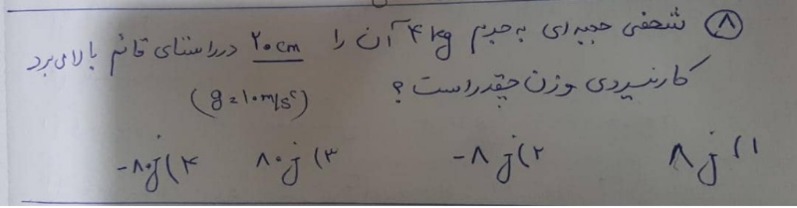 ۸ شخصی جعبه ای به جرم ۴kg آن را ۲۰cm در راستای قائم بالا می برد
کار نیروی وزن چقدر است؟ (g=۱۰m/s²)
۱) ۸j ۲) -۸j ۳) ۸۰j ۴) -۸۰j